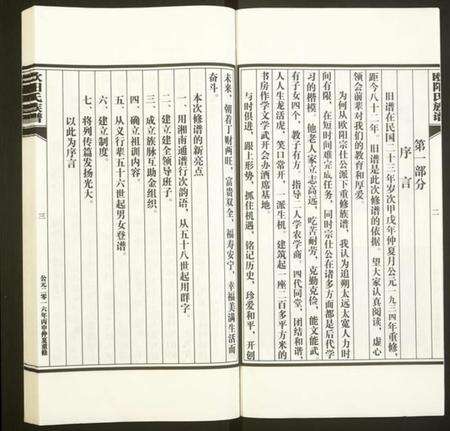 欧阳氏族谱
二
第一部分
序言
旧谱在民国二十三年岁次甲戌年仲夏月公元一九三四年重修，
距今八十一年，旧谱是此次修谱的依据。望大家认真阅读，虚心
领会前辈对我们的教育和厚爱。
为何从欧阳宗仕公派下重修族谱，我认为追朔太远太宽人力时
间有限，在短时间难完成任务，同时宗仕公在诸多方面都是后代学
习的楷模，他老人家立志高远，吃苦耐劳，克勤克俭，能文能武，
有子女四个，教子有方，指导二人农学商，四代同堂，团结和谐，
人人生龙活虎，笑口常开，一派生机。建筑起一座二百多平方米的
书房作学文学武开会办酒席基地。
与时俱进，跟上形势，抓住机遇，铭记历史，珍爱和平，开创
未来，朝着丁财两旺，富贵双全，福寿安宁，幸福美满生活而
奋斗。
本次修谱的新亮点
一、用湘南通谱行次韵语，从五十八世起用群字。
二、建立建全领导班子。
三、成立族脉互助金组织。
四、确立祖训内容。
五、从义行辈五十六世起男女登谱。
六、建立制度。
七、将列传篇发扬光大。
以此为序言
欧阳氏族谱
三
公元二零一六年丙申仲夏重修